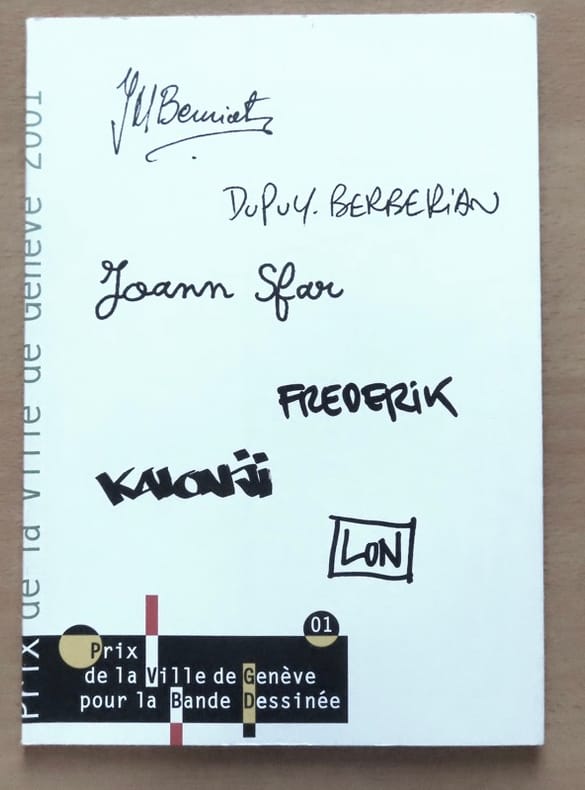 JM Beuriot
DUPUY. BERBERiAN
Joann Sfar
FREDERiK
KALONJi
LON
prix de la Ville de Genève 2001
01
Prix
de la Ville de Genève
pour la Bande Dessinée